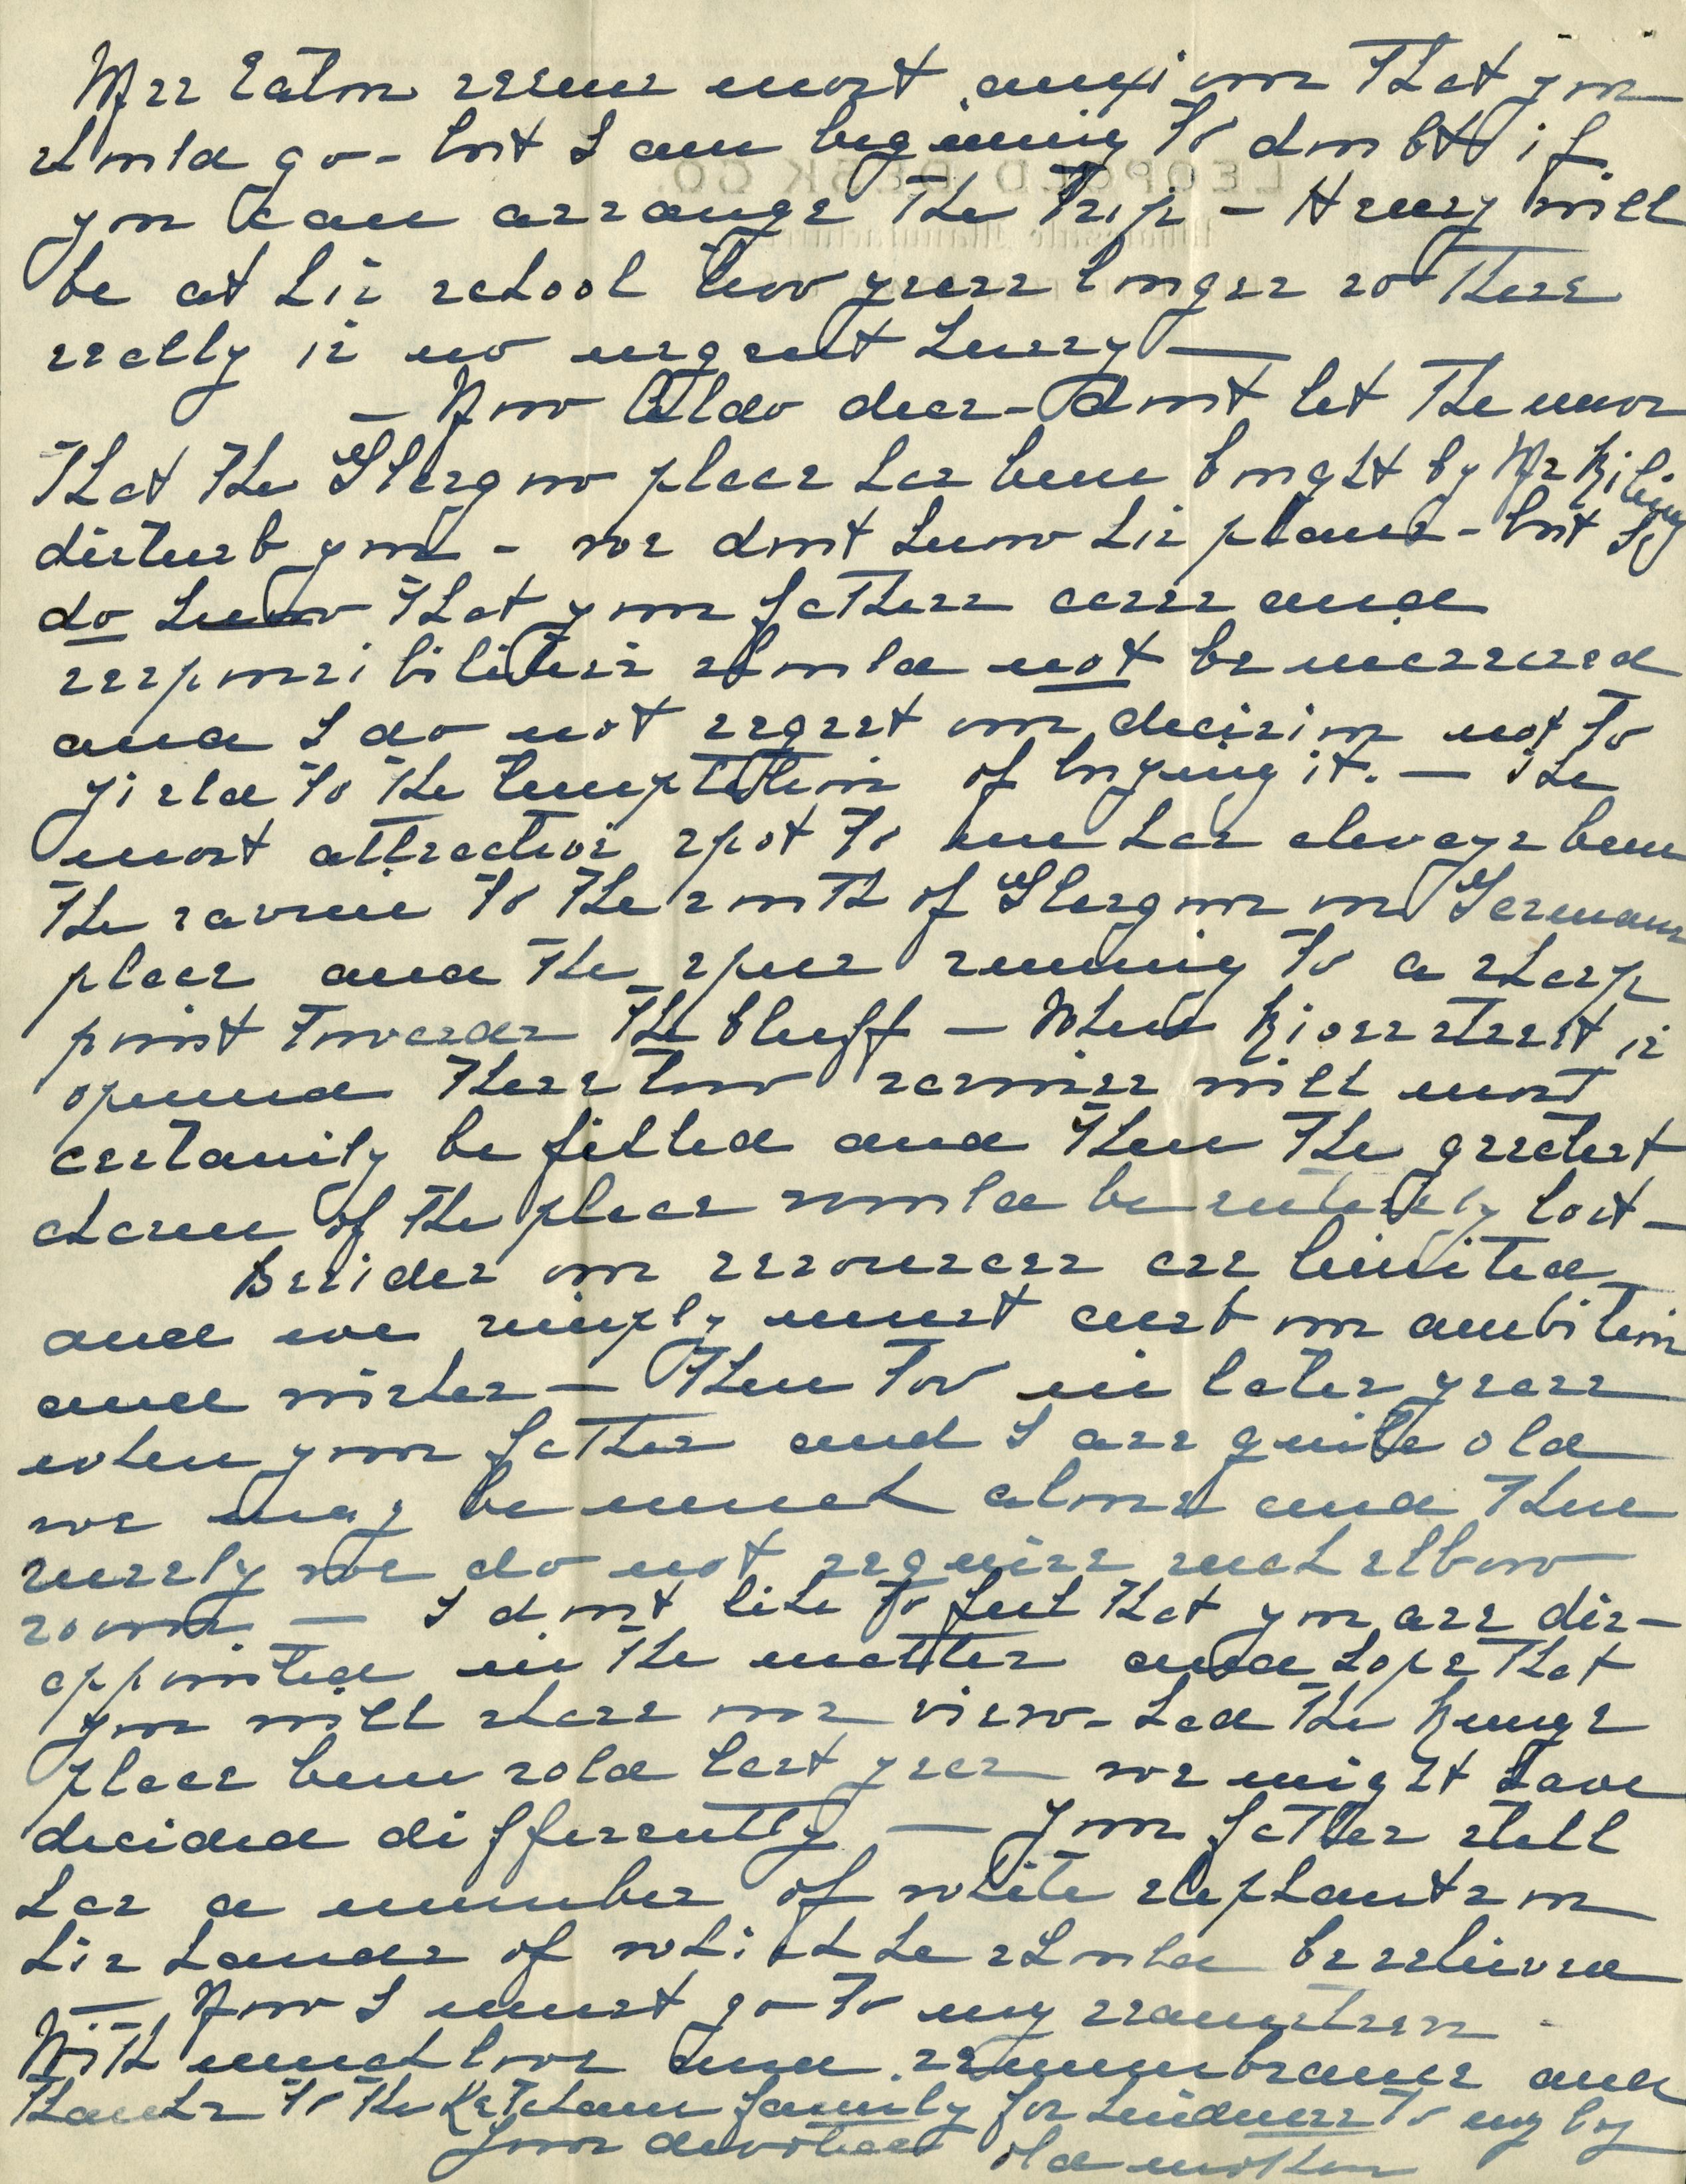 Mrs Eaton seems most anxious that you
should go - but I am beginning to doubt if
you can arrange the trip - Henry will
be at his school two years longer so there
really is no urgent hurry —
- Now Aldo dear - dont let the news
that the Starg now place has been bought by Mr
disturb you - we dont know his plans - but I
do know that your fathers cares and
responsibilities should not be increased
and I do not regret our decision not to
yield to the temptation of buying it. — The
most attractive spot to me has always been
the ravine to the south of or Germans
place and the spur running to a sharp
point towards the bluff — When River street is
opened these two ravines will most
certainly be filled and then the greatest
charm of the place would be entirely lost —
Besides our resources are limited
and we simply must curb our ambition
and wishes — Then too in later years
when your father and I are quite old
we may be much alone and then
surely we do not require such elbow
room. — I dont like to feel that you are dis-
appointed in the matter and hope that
you will share our view - had the Runge
place been sold last year we might have
decided differently — Your father still
has a number of white elephants on
his hands of which he should be relieved
— Now I must go to my seamstress -
With much love and remembrance and
thanks to the Ketcham family for kindness to my boy
Your devoted old mother
LEOPOLD DESK CO.
Wholesale Manufacturers